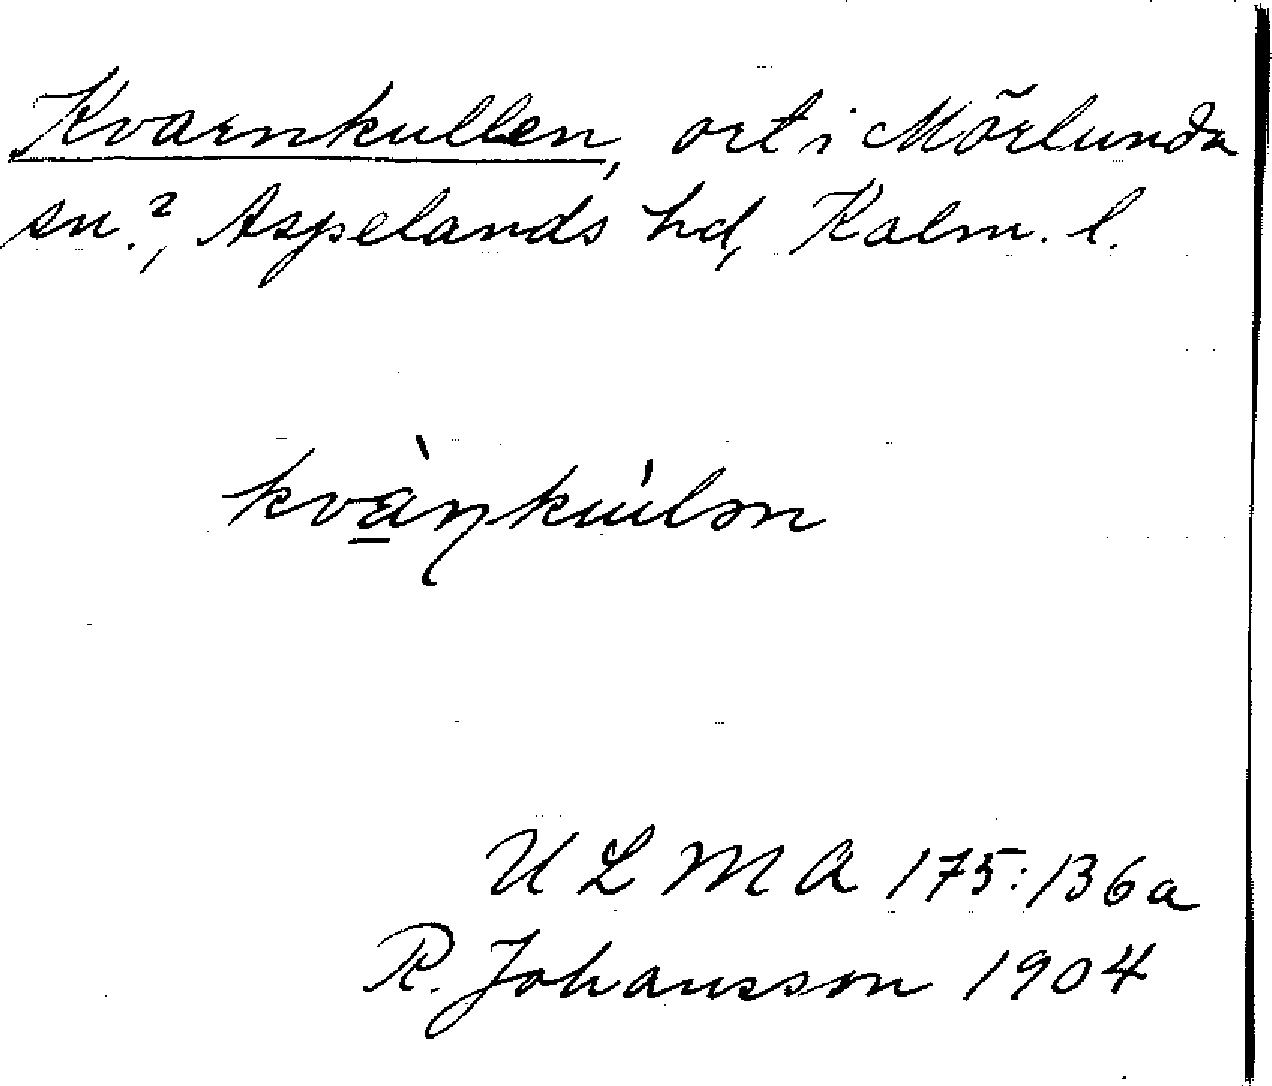 Kvarnkullen, ort i Mörlunda
sn.?, Aspelands hd, Kalm. l.
kvàŋkúlən
ULMA 175:136a
R. Johansson 1904